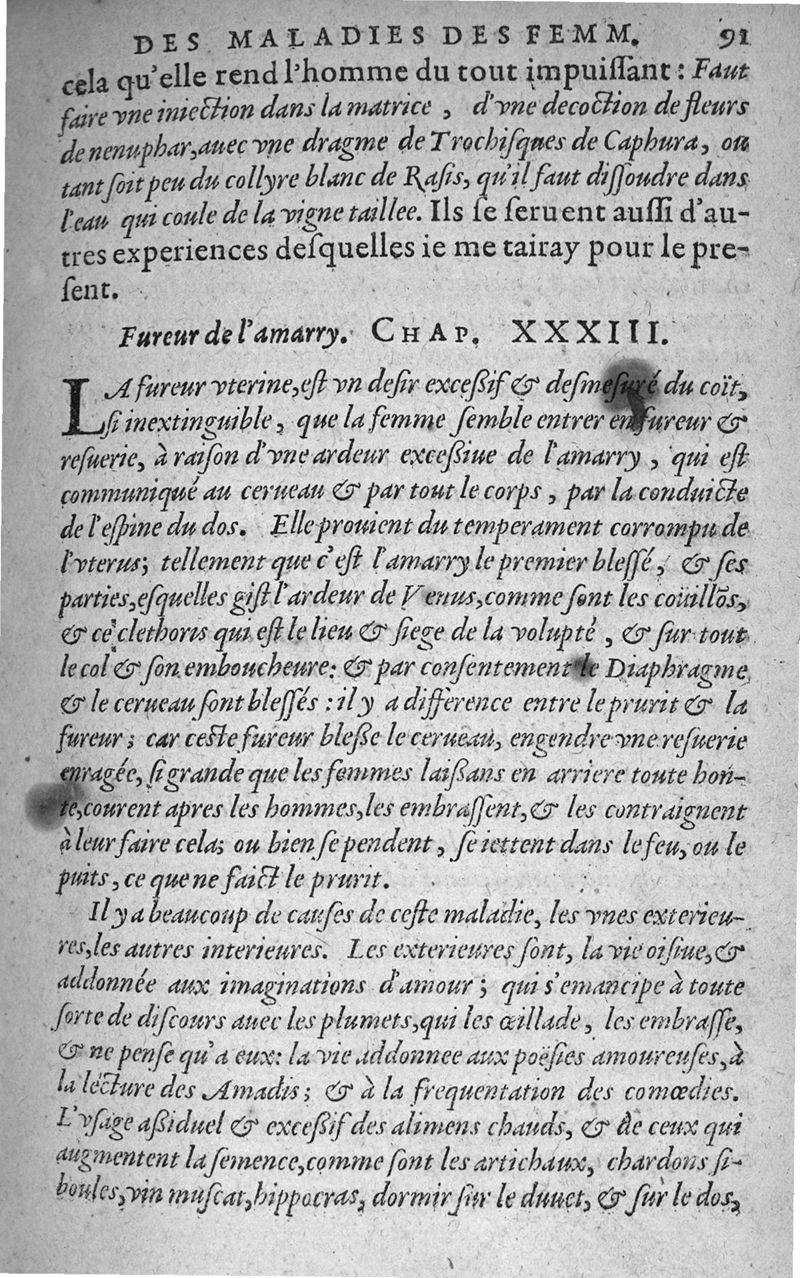 DES MALADIES DES FEMM. 91
cela qu'elle rend l'homme du tout impuiſſant : Faut
faire vne iniection dans la matrice , d'vne decoction de fleurs
de nenuphar, auec vne dragme de Trochiſques de Caphura, ou
tant ſoit peu du collyre blanc de Raſis, qu'il faut diſſoudre dans
l'eau qui coule de la vigne taillee. Ils ſe ſeruent auſſi d'au-
tres experiences deſquelles ie me tairay pour le pre-
ſent.
Fureur de l'amarry. CHAP. XXXIII.
LA fureur vterine, eſt vn deſir exceſſif & deſmeſuré du coït,
ſi inextinguible, que la femme ſemble entrer en fureur &
reſuerie, à raiſon d'vne ardeur exceſſiue de l'amarry , qui eſt
communiqué au cerueau & par tout le corps , par la conduicte
de l'eſpine du dos. Elle prouient du temperament corrompu de
l'vterus; tellement que c'eſt l'amarry le premier bleſſé, & ſes
parties, eſquelles giſt l'ardeur de Venus, comme ſont les coüillōs,
& ce clethoris qui eſt le lieu & ſiege de la volupté , & ſur tout
le col & ſon emboucheure: & par conſentement le Diaphragme
& le cerueau ſont bleſſés : il y a difference entre le prurit & la
fureur ; car ceſte fureur bleſſe le cerueau, engendre vne reſuerie
enragée, ſi grande que les femmes laiſſans en arriere toute hon-
te, courent apres les hommes, les embraſſent, & les contraignent
à leur faire cela; ou bien ſe pendent, ſe iettent dans le feu, ou le
puits, ce que ne faict le prurit.
Il y a beaucoup de cauſes de ceſte maladie, les vnes exterieu-
res, les autres interieures. Les exterieures ſont, la vie oiſiue, &
addonnée aux imaginations d'amour ; qui s'emancipe à toute
ſorte de diſcours auec les plumets, qui les œillade, les embraſſe,
& ne penſe qu'a eux: la vie addonnee aux poëſies amoureuſes, à
la lecture des Amadis ; & à la frequentation des comœdies.
L'vſage aſſiduel & exceſſif des alimens chauds, & de ceux qui
augmentent la ſemence, comme ſont les artichaux, chardons ſi-
boules, vin muſcat, hippocras, dormir ſur le duuet, & ſur le dos,